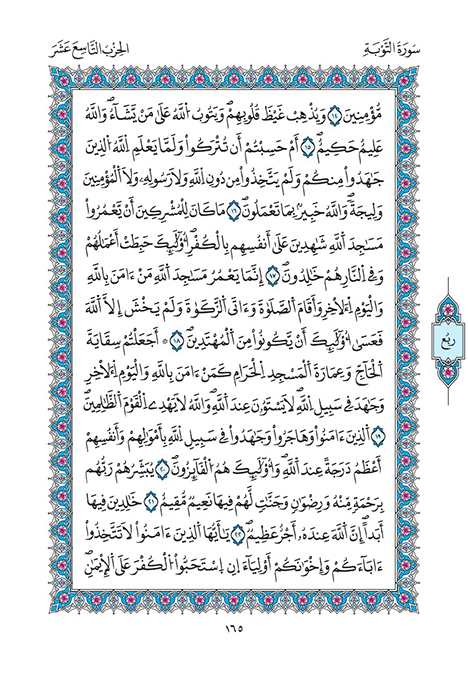 سُورَةُ التَّوْبَةِ
الحِزْبُ التَّاسِعَ عَشَرَ
مُّؤْمِنِينَ ١٤ وَيُذْهِبْ غَيْظَ قُلُوبِهِمْ وَيَتُوبُ اللَّهُ عَلَىٰ مَنْ يَّشَآءُ وَاللَّهُ
عَلِيمٌ حَكِيمٌ ١٥ أَمْ حَسِبْتُمْ أَن تُتْرَكُوا وَلَمَّا يَعْلَمِ اللَّهُ الَّذِينَ
جَٰهَدُوا مِنكُمْ وَلَمْ يَتَّخِذُوا مِن دُونِ اللَّهِ وَلَا رَسُولِهِ وَلَا الْمُؤْمِنِينَ
وَلِيجَةً وَاللَّهُ خَبِيرٌ بِمَا تَعْمَلُونَ ١٦ مَا كَانَ لِلْمُشْرِكِينَ أَنْ يَّعْمُرُوا
مَسَٰجِدَ اللَّهِ شَٰهِدِينَ عَلَىٰ أَنفُسِهِم بِالْكُفْرِ أُوْلَٰٓئِكَ حَبِطَتْ أَعْمَٰلُهُمْ
وَفِي النَّارِ هُمْ خَٰلِدُونَ ١٧ إِنَّمَا يَعْمُرُ مَسَٰجِدَ اللَّهِ مَنْ ءَامَنَ بِاللَّهِ
وَالْيَوْمِ الْأَخِرِ وَأَقَامَ الصَّلَوٰةَ وَءَاتَى الزَّكَوٰةَ وَلَمْ يَخْشَ إِلَّا اللَّهَ
فَعَسَىٰ أُوْلَٰٓئِكَ أَنْ يَّكُونُوا مِنَ الْمُهْتَدِينَ ١٨ ۞ أَجَعَلْتُمْ سِقَايَةَ
الْحَآجِّ وَعِمَارَةَ الْمَسْجِدِ الْحَرَامِ كَمَنْ ءَامَنَ بِاللَّهِ وَالْيَوْمِ الْأَخِرِ
وَجَٰهَدَ فِي سَبِيلِ اللَّهِ لَا يَسْتَوُونَ عِندَ اللَّهِ وَاللَّهُ لَا يَهْدِي الْقَوْمَ الظَّٰلِمِينَ
١٩ الَّذِينَ ءَامَنُوا وَهَاجَرُوا وَجَٰهَدُوا فِي سَبِيلِ اللَّهِ بِأَمْوَٰلِهِمْ وَأَنفُسِهِمْ
أَعْظَمُ دَرَجَةً عِندَ اللَّهِ وَأُوْلَٰٓئِكَ هُمُ الْفَآئِزُونَ ٢٠ يُبَشِّرُهُمْ رَبُّهُم
بِرَحْمَةٍ مِّنْهُ وَرِضْوَٰنٍ وَجَنَّٰتٍ لَّهُمْ فِيهَا نَعِيمٌ مُّقِيمٌ ٢١ خَٰلِدِينَ فِيهَا
أَبَدًا إِنَّ اللَّهَ عِندَهُۥ أَجْرٌ عَظِيمٌ ٢٢ يَٰٓأَيُّهَا الَّذِينَ ءَامَنُوا لَا تَتَّخِذُوا
ءَابَآءَكُمْ وَإِخْوَٰنَكُمْ أَوْلِيَآءَ انِ اسْتَحَبُّوا الْكُفْرَ عَلَى الْإِيمَٰنِ
رُبُع
١٦٥